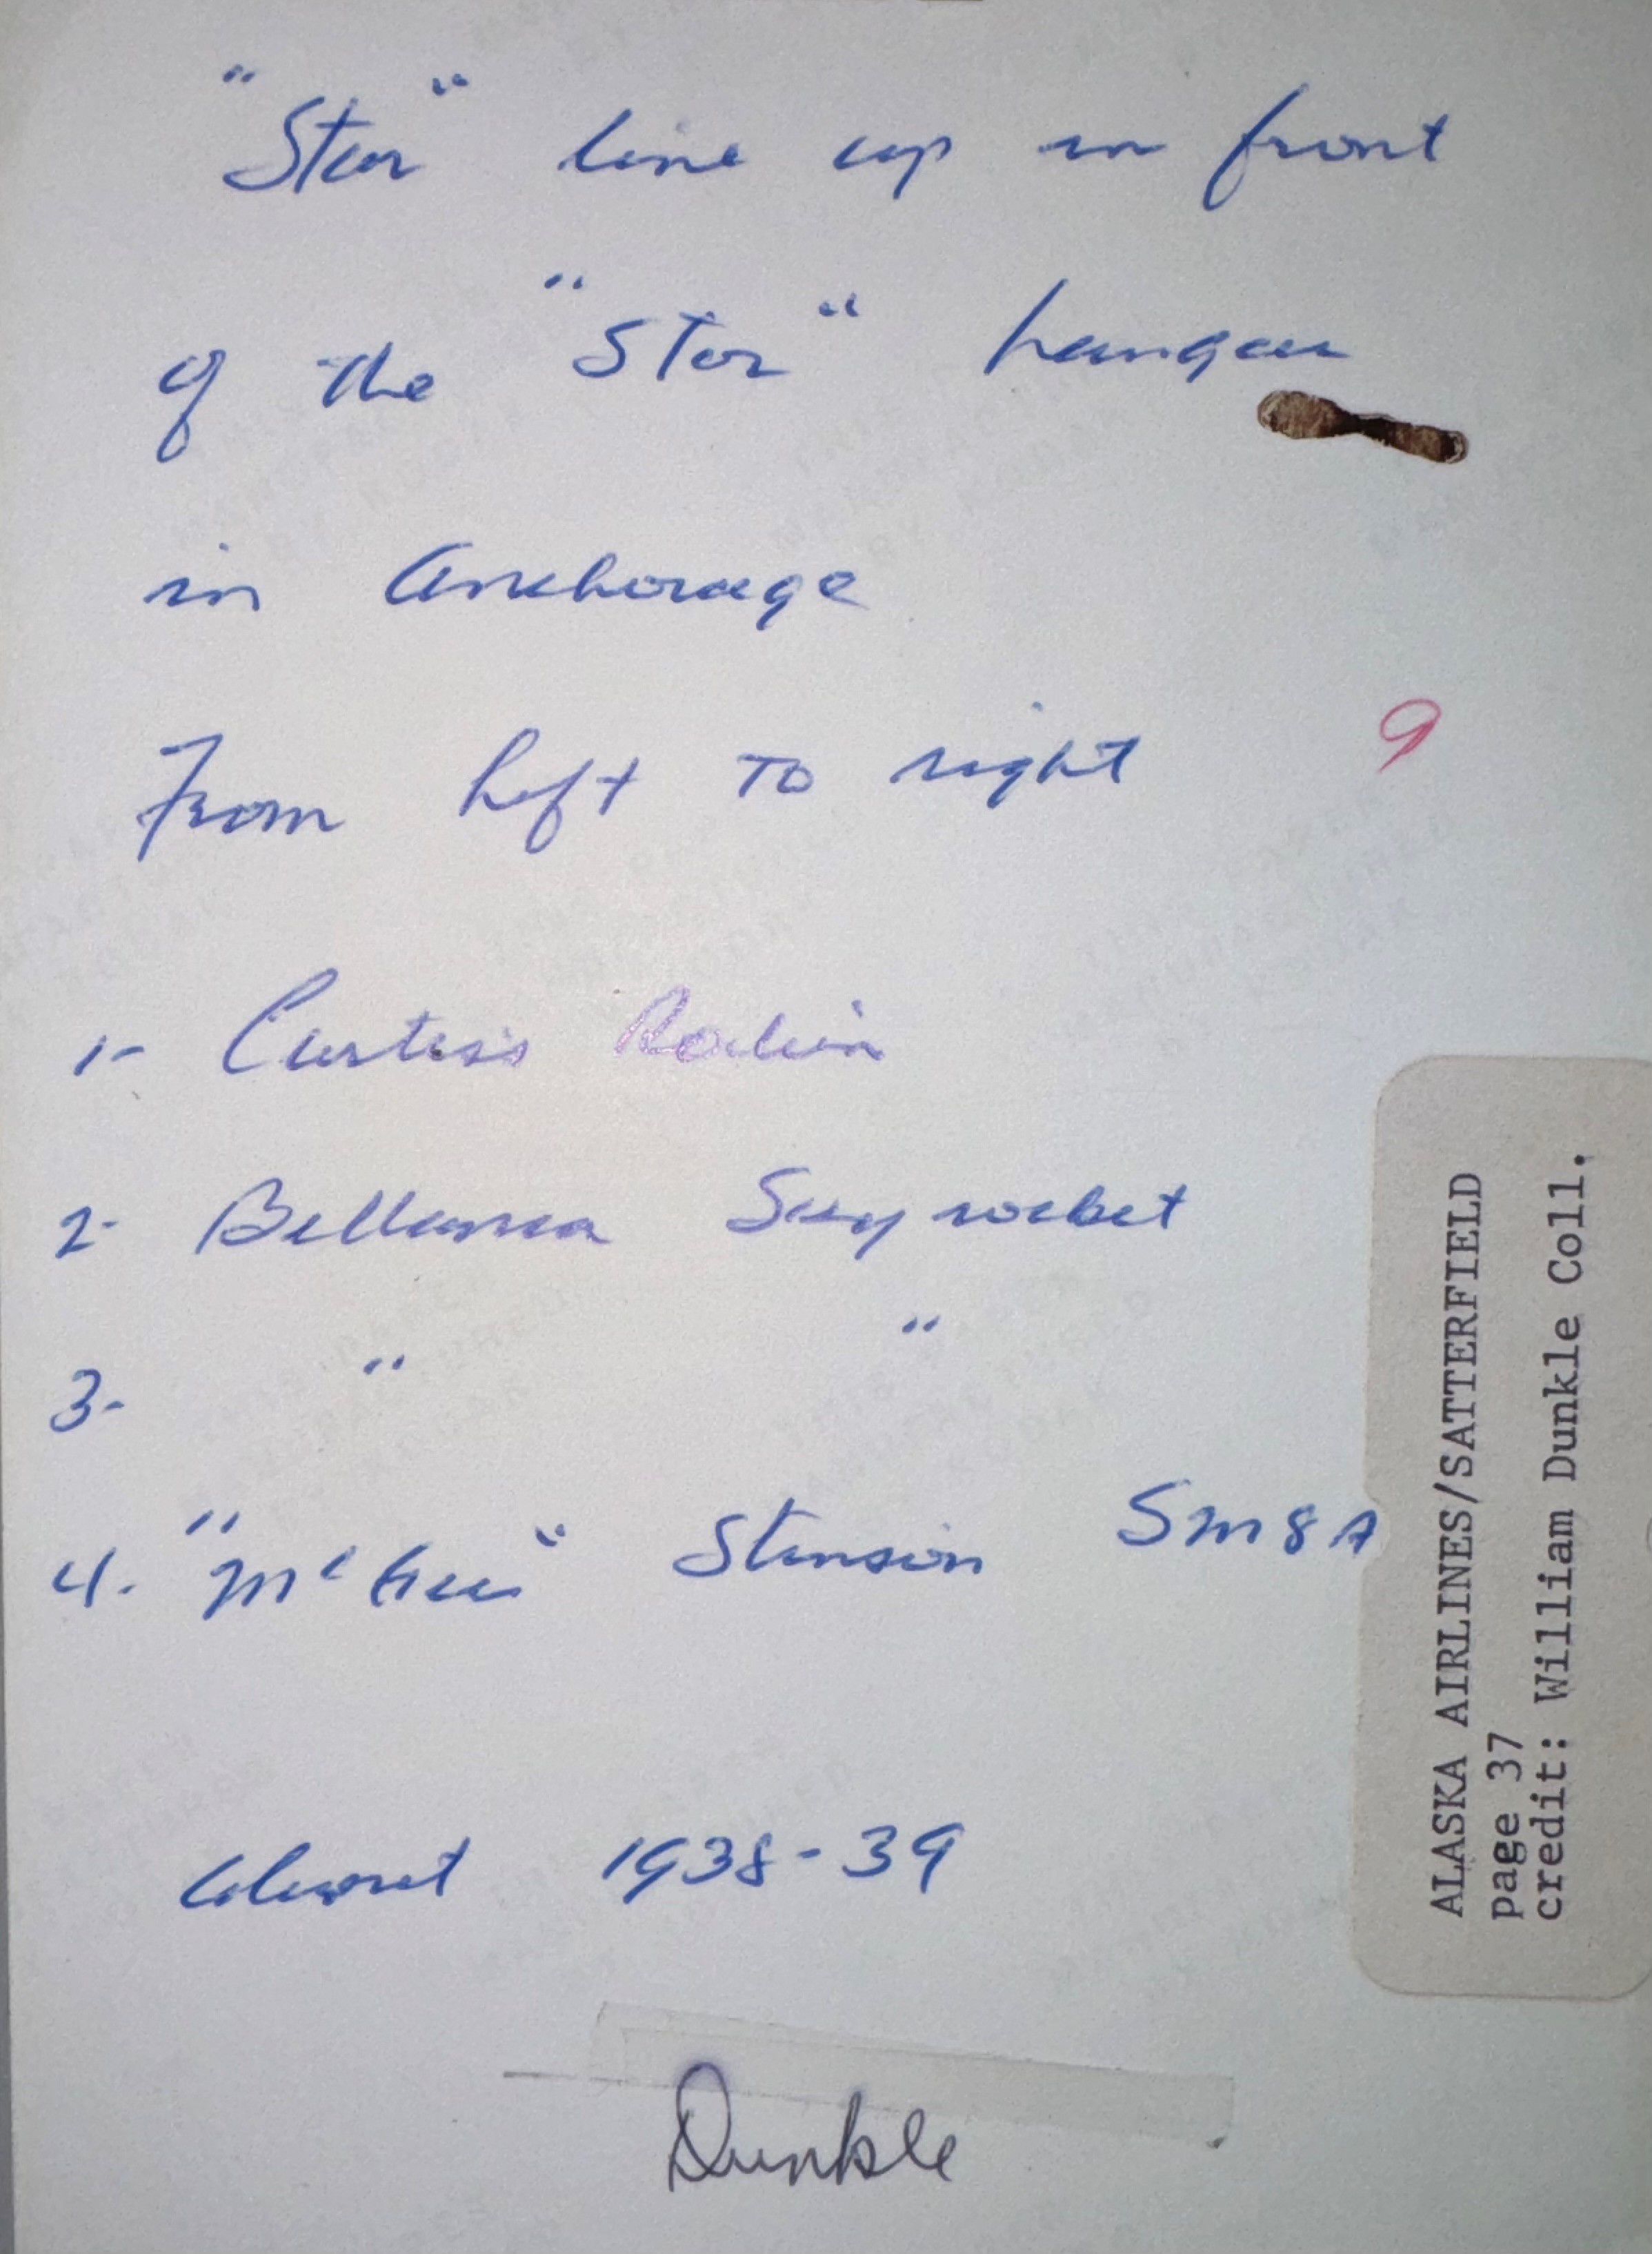 "Star" line up in front
of the "Star" hangar
in Anchorage
From Left To right
9
1- Curtiss Robin
2- Bellanca Skyrocket
3- " "
4. "McGee" Stinson SM8A
about 1938-39
Dunkle
ALASKA AIRLINES/SATTERFIELD
page 37
credit: William Dunkle Coll.